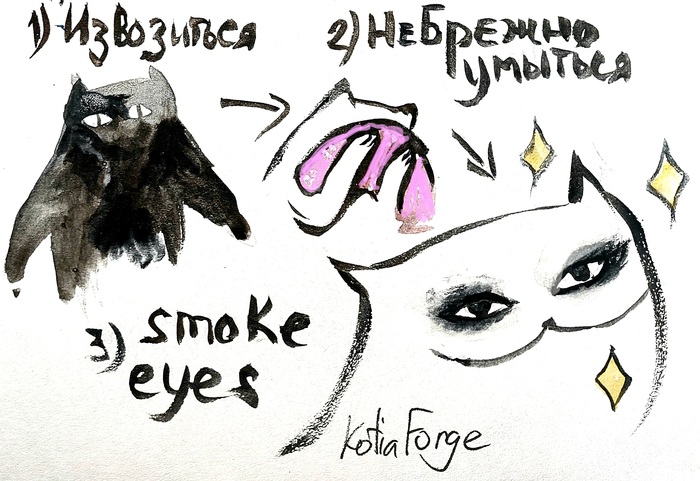 1) Извозиться
2) Небрежно
умыться
3) smoke
eyes
Kotia Forge